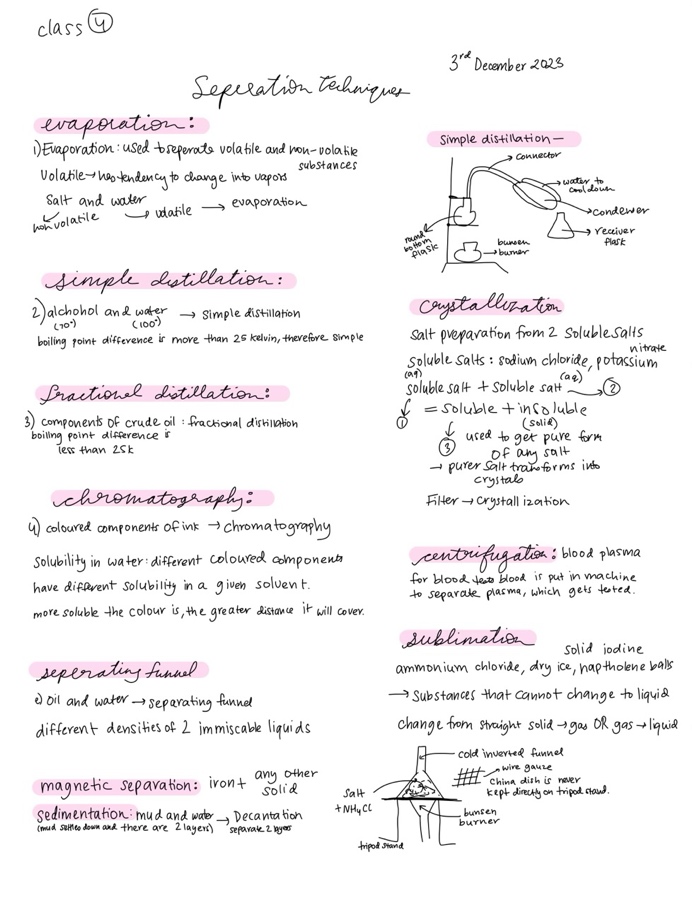 class 4
3rd December 2023
Seperation techniques
evaporation:
1) Evaporation: used to seperate volatile and non-volatile
substances
Volatile → has tendency to change into vapors
Salt and water
non volatile → volatile → evaporation
simple distillation:
2) alchohol and water → simple distillation
(70°) (100°)
boiling point difference is more than 25 kelvin, therefore simple
fractional distillation:
3) components of crude oil : fractional distillation
boiling point difference is
less than 25k
chromatography:
4) coloured components of ink → chromatography
Solubility in water: different coloured components
have different solubility in a given solvent.
more soluble the colour is, the greater distance it will cover.
seperating funnel
oil and water → separating funnel
different densities of 2 immiscable liquids
magnetic separation: iron + any other
solid
sedimentation: mud and water → Decantation
(mud settles down and there are 2 layers) separate 2 layers
Simple distillation —
connector
water to
cool down
condenser
receiver
flask
round
bottom
flask
bunsen
burner
crystallization
salt preparation from 2 soluble salts
nitrate
soluble salts : sodium chloride, potassium
(aq) (aq)
soluble salt + soluble salt → 2
1 = soluble + insoluble
(solid)
3 used to get pure form
of any salt
→ purer salt transforms into
crystals
Filter → crystallization
centrifugation: blood plasma
for blood tests blood is put in machine
to separate plasma, which gets tested.
sublimation
solid iodine
ammonium chloride, dry ice, napthalene balls
→ substances that cannot change to liquid
change from straight solid → gas OR gas → liquid
cold inverted funnel
wire gauze
china dish is never
kept directly on tripod stand.
salt
+ NH4Cl
bunsen
burner
tripod stand